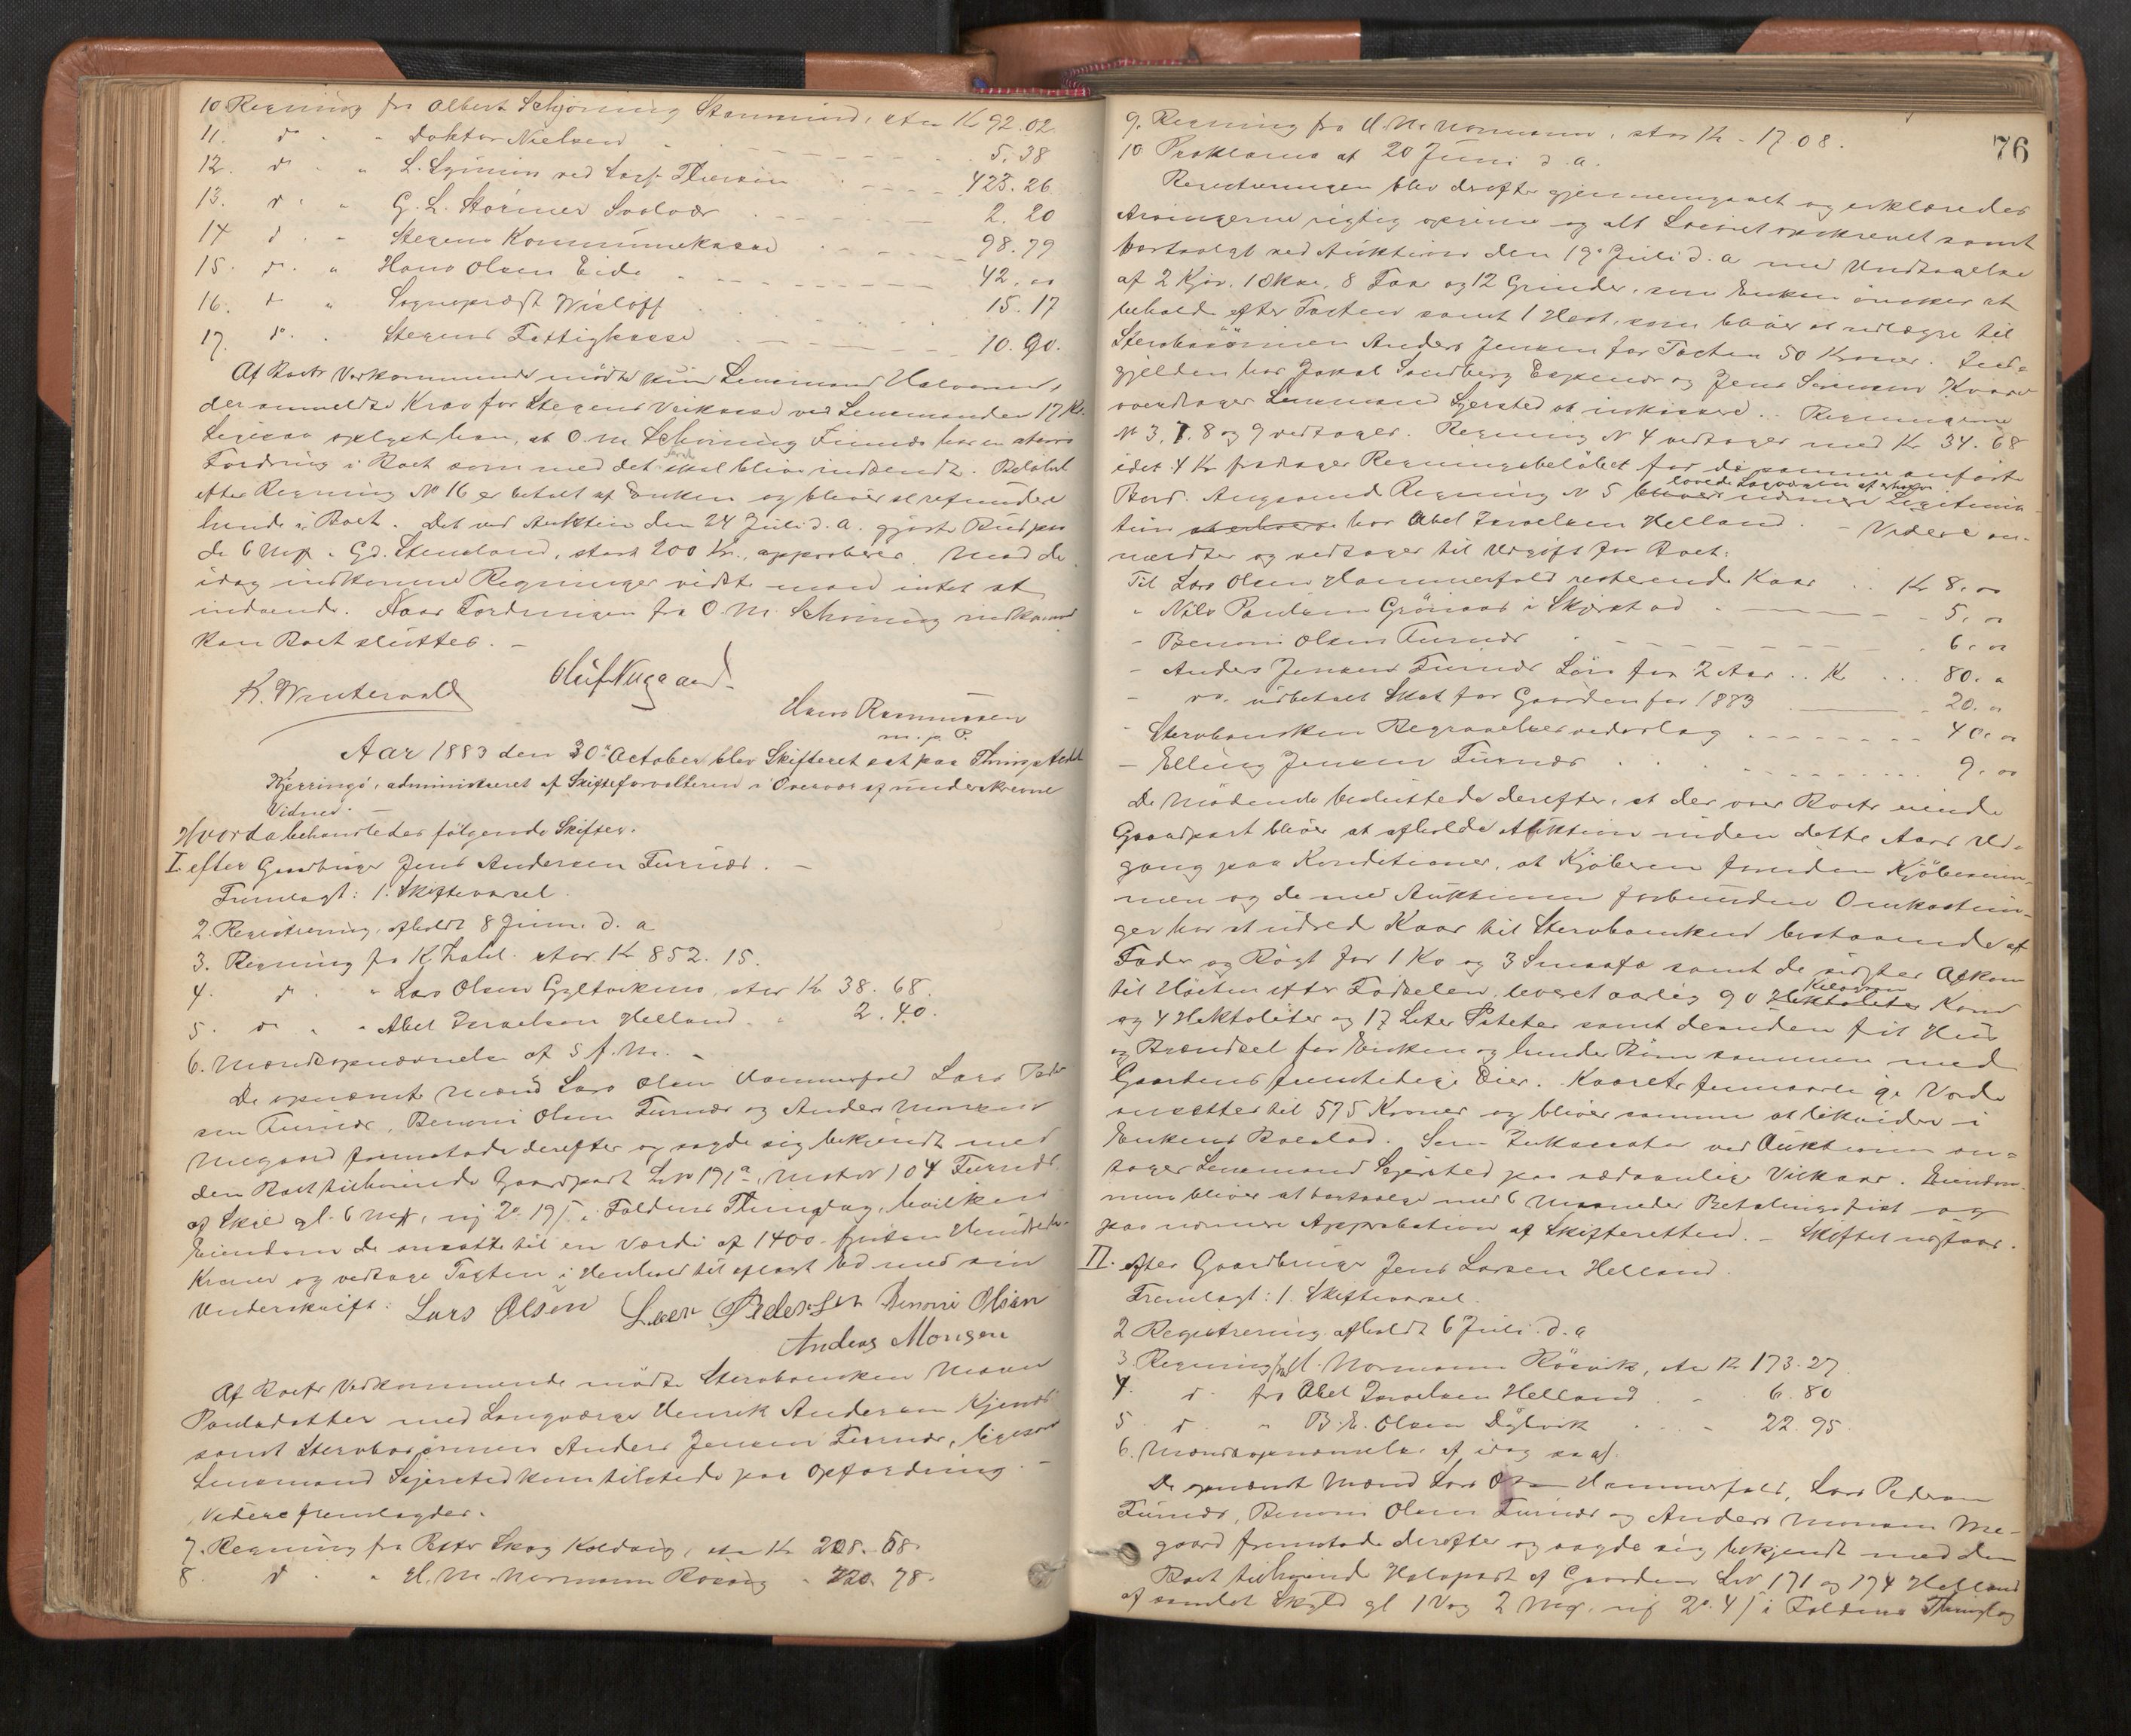 10. Regning fra Albert Schjøning Stammind, stor Kr 92.02.
11. do - Doktor Nielsen 5.38
12. do " L. ved Thiesen 423.26
13. do " G. L. Störmer Svolvær 2.20
14 do - Stegens Kommunekasse 98.79
15. do " Hans Olsen Eide 42.00
16. do " Sogneprest Wisløff 15.17
17. do . Stegens Fattigkasse 10.90.
Af Boets Vedkommende mødte kun Lensmand Halvorsen,
der anmeldte Krav for Stegens Veikasse ved Lensmanden 17 Kr.
Ligesaa oplyst han, at O. M. Schøning har en
Fordring i Boet som med det første skal blive indsendt. Beløbet
efter Regning No 16 er betalt af Enken og bliver at refundere
hende i Boet. Det ved Auktion den 24 Juli d. A. gjorte Bud paa
de 6 Mrk i Gd. Stensland, stort 200 Kr., approberes. Mod de
idag indkomne Regninger vidste man intet at
indvende. Naar Fordringen fra O. M. Schøning indkommer
kan Boet sluttes. -
K. Wintervold Oluf Nygaard
Hans Rasmussen
m. p. P.
Aar 1883 den 30te October blev Skifteret sat paa Thingstedet
Kjerringö, administreret af Skifteforvalteren i Overvær af underskrevne
Vidner. -
Hvorda behandledes følgende Skifter.
I. efter Gaardbruger Jens Andersen Furnæs. -
Fremlagt: 1. Skiftevarsel.
2. Registrering, afholdt 8 Juni d. a
3. Regning fra K. Zahl. stor. Kr 852. 15.
4. do " Lars Olsen Gyltvikens, stor Kr 38. 68.
5. do . - Abel Israelsen Helland " 2. 40.
6. Mandsopnævnelse af 5 f. M. -
De opnævnte Mænd Lars Olsen Hammerfald Lars Peder
sen Furnæs, Benoni Olsen Furnæs og Anders Monsen
Megaard fremstode derefter og sagde sig bekjendt med
den Boet tilhørende Gaardpart Lno 191a, Matr No 104 Furnæs
af Skyld gl. 6 Mrk, ny 2o. 19 i Foldens Thinglag, hvilken
Eiendom de ansatte til en Værdi af 1400 - fjorten Hundrede
Kroner og vedtage Taxten i Henhold til aflagt Ed med sin
Underskrift: Lars Olsen Lars Pedersen Benoni Olsen
Anders Monsen
Af Boets Vedkommende mødte Sterboenken Maren
Paulsdatter med Laugværge Henrik Andersen Kjernæs
samt Sterbosønnen Anders Jensen Furnæs, ligesom
Lensmand Sejersted kom tilstede paa Opfordring. -
Videre fremlagdes.
7. Regning fra Peter Skog Koldvig, stor Kr 208. 58.
8. do - " H. M. Normann Røsvig " 220. 78.
76
9. Regning fra H. M. Normann, stor Kr - 17 08.
10. Proklama af 20 Juni d. a.
Registreringen blev derefter gjennemgaaet og erklæredes
Arvingerne rigtig opgiven og alt Løsøret opskrevet samt
bortsolgt ved Auktion den 19de Juli d. a med Undtagelse
af 2 Kjør, 8 Faar og 12 Grinder, som Enken ønsker at
beholde efter Taxten samt 1 Hest, som bliver at udlægge til
Sterbosönnen Anders Jensen for Taxten 50 Kroner. Inde-
gjelden hos Jakob Sandberg og Jens Sörensen
overdrages Lensmand Sejersted at inkassere. Regningerne
No 3, 7. 8 og 9 vedtages. Regning No 4 vedtages med Kr. 34. 68
idet 4 Kr fradrages Regningsbeløbet for de samme anførte
Bord. Angaaende Regning No 5 lovede Laugværgen at erhverve nærmere Legitima-
tion at erhverve hos Abel Israelsen Helland. - Videre an-
meldtes og vedtages til Udgift for Boet:
Til Lars Olsen Hammerfald resterende Kaar .. Kr 8.00
" Nils Paulsen Grönaas i Skjerstad 5.00
- Benoni Olsen Furnæs 6.00
- Anders Jensen Furnæs Løn for 2 Aar .. Kr 80.00
- do. udbetalt Skat for Gaarden for 1883 20.00
- Sterboenken Begravelsesvederlag 40.00
- Elling Jensen Furnæs 9.00
De Mødende besluttede derefter, at der over Boets eiende
Gaardpart bliver at afholde Auktion inden dette Aars Ud-
gang paa Konditioner, at Kjøberen foruden Kjøbesum-
men og de med Auktionen forbundne Omkostnin-
ger har at udrede Kaar til Sterboenken bestaaende af
Foder og Røgt for 1 Ko og 3 Smaafæ samt de sidstes Afkom
til Høsten efter Fødselen, leveret aarlig 90 Kilogram Hektoliter Korn
og 4 Hektoliter og 17 Liter Poteter samt desuden frit Hus
og Brændsel for Enken og hendes Börn sammen med
Gaardens fremtidige Eier. Kaarets femaarlige Værdi
ansattes til 575 Kroner og bliver samme at likvidere i
Enkens Boeslod. Som Inkassator ved Auktionen an-
tages Lensmand Sejersted paa sædvanlige Vilkaar. Eiendom-
men bliver at bortsælge med 6 Maaneder Betalingsfrist og
paa nærmere Approbation af Skifteretten. - Skiftet udstaar.
II. efter Gaardbruger Jens Larsen Helland.
Fremlagt: 1. Skiftevarsel.
2 Registrering afholdt 6 Juli d. a
3. Regning fra H. Normann Rösvik, stor Kr 173. 27.
4. do fra Abel Israelsen Helland 6. 80
5. do " B. E. Olsen Dybvik 22. 95.
6. Mandsopnævnelse af idag
De opnævnte Mænd Lars Olsen Hammerfald, Lars Pedersen
Furnæs, Benoni Olsen Furnæs og Anders Monsen Me-
gaard fremstode derefter og sagde sig bekjendt med den
Boet tilhørende Halvpart af Gaarden Lno 171 og 174 Helland
af samlet Skyld gl 1 Vog 2 Mrk. ny 2o. 4 i Foldens Thinglag